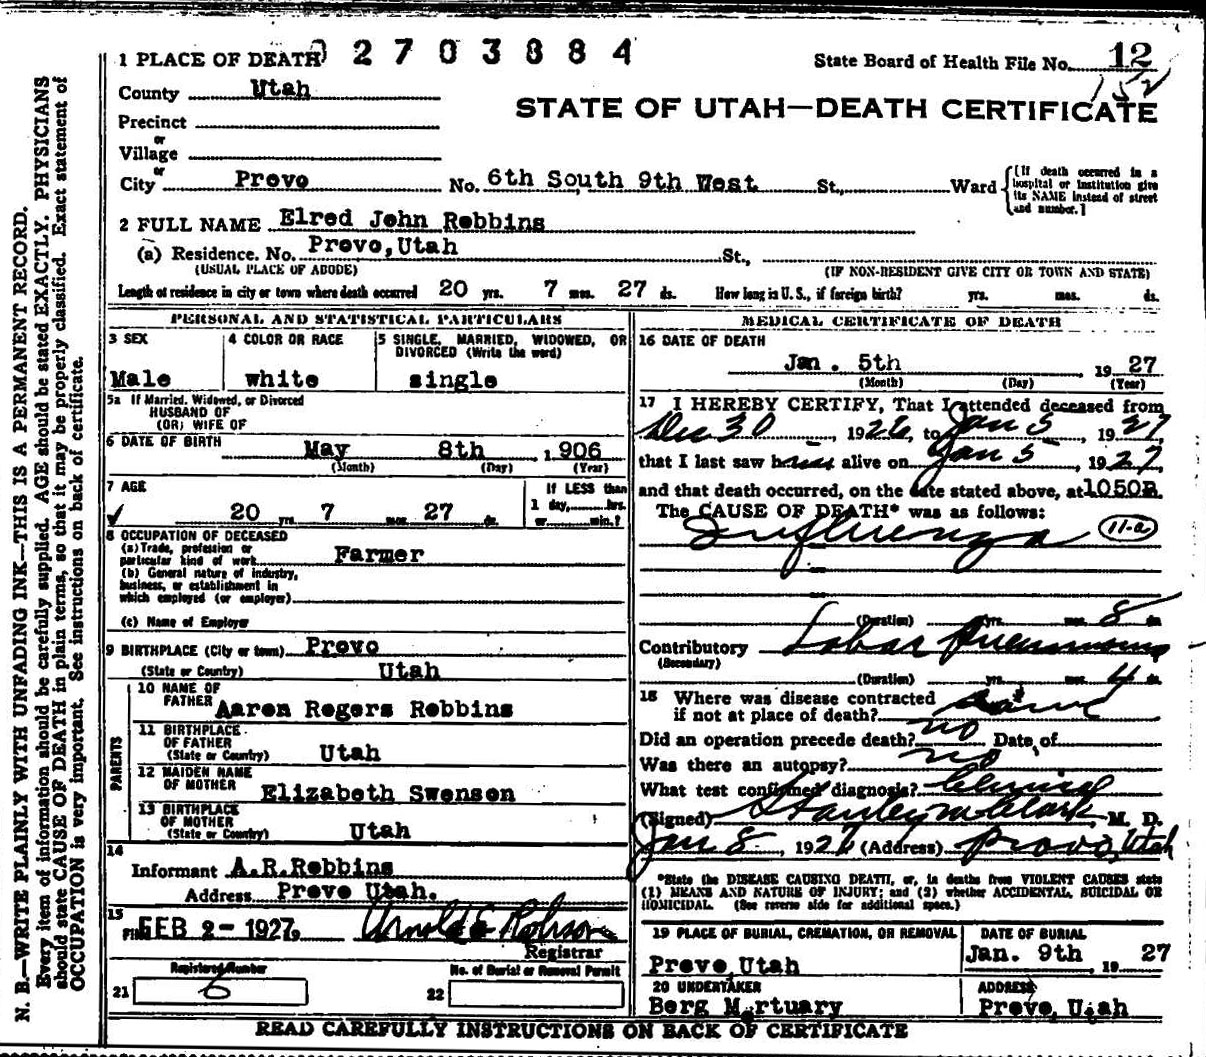 2703884
1 PLACE OF DEATH
State Board of Health File No. 12
152
County Utah
STATE OF UTAH—DEATH CERTIFICATE
Precinct
or
Village
or
City Provo No. 6th South 9th West St., Ward
[If death occurred in a hospital or institution give its NAME instead of street and number.]
2 FULL NAME Elred John Robbins
(a) Residence. No. Provo, Utah St.,
(USUAL PLACE OF ABODE) (IF NON-RESIDENT GIVE CITY OR TOWN AND STATE)
Length of residence in city or town where death occurred 20 yrs. 7 mos. 27 ds. How long in U. S., if foreign birth? yrs. mos. ds.
PERSONAL AND STATISTICAL PARTICULARS
3 SEX
Male
4 COLOR OR RACE
white
5 SINGLE, MARRIED, WIDOWED, OR DIVORCED (Write the word)
single
5a If Married, Widowed, or Divorced
HUSBAND OF
(OR) WIFE OF
6 DATE OF BIRTH
May 8th, 1906
(Month) (Day) (Year)
7 AGE
20 yrs. 7 mos. 27 ds.
If LESS than
1 day,......hrs.
or......min.?
8 OCCUPATION OF DECEASED
(a) Trade, profession or
particular kind of work Farmer
(b) General nature of industry,
business, or establishment in
which employed (or employer)
(c) Name of Employer
9 BIRTHPLACE (City or town) Provo
(State or Country) Utah
PARENTS
10 NAME OF
FATHER Aaron Rogers Robbins
11 BIRTHPLACE
OF FATHER
(State or Country) Utah
12 MAIDEN NAME
OF MOTHER Elizabeth Swenson
13 BIRTHPLACE
OF MOTHER
(State or Country) Utah
14
Informant A.R.Robbins
Address Provo Utah.
15
FILED FEB 2- 1927,
Registrar
Registered Number
21 6
No. of Burial or Removal Permit
22
MEDICAL CERTIFICATE OF DEATH
16 DATE OF DEATH
Jan. 5th, 1927
(Month) (Day) (Year)
17 I HEREBY CERTIFY, That I attended deceased from
Dec 30, 1926, to Jan 5, 1927
that I last saw him alive on Jan 5, 1927,
and that death occurred, on the date stated above, at 1050P.
The CAUSE OF DEATH* was as follows:
Influenza 11-a
(Duration) yrs. mos. 8 ds.
Contributory Lobar Pneumonia
(Secondary)
(Duration) yrs. mos. 4 ds.
18 Where was disease contracted
if not at place of death? same
Did an operation precede death? no Date of
Was there an autopsy? no
What test confirmed diagnosis? Clinical
(Signed) Stanley M Clark M. D.
Jan 8, 1927 (Address) Provo, Utah
*State the DISEASE CAUSING DEATH, or, in deaths from VIOLENT CAUSES state
(1) MEANS AND NATURE OF INJURY; and (2) whether ACCIDENTAL, SUICIDAL OR
HOMICIDAL. (See reverse side for additional space.)
19 PLACE OF BURIAL, CREMATION, OR REMOVAL
Provo, Utah
DATE OF BURIAL
Jan. 9th, 1927
20 UNDERTAKER
Berg Mortuary
ADDRESS
Provo, Utah
READ CAREFULLY INSTRUCTIONS ON BACK OF CERTIFICATE
N. B.—WRITE PLAINLY WITH UNFADING INK—THIS IS A PERMANENT RECORD.
Every item of information should be carefully supplied. AGE should be stated EXACTLY. PHYSICIANS
should state CAUSE OF DEATH in plain terms, so that it may be properly classified. Exact statement of
OCCUPATION is very important. See instructions on back of certificate.